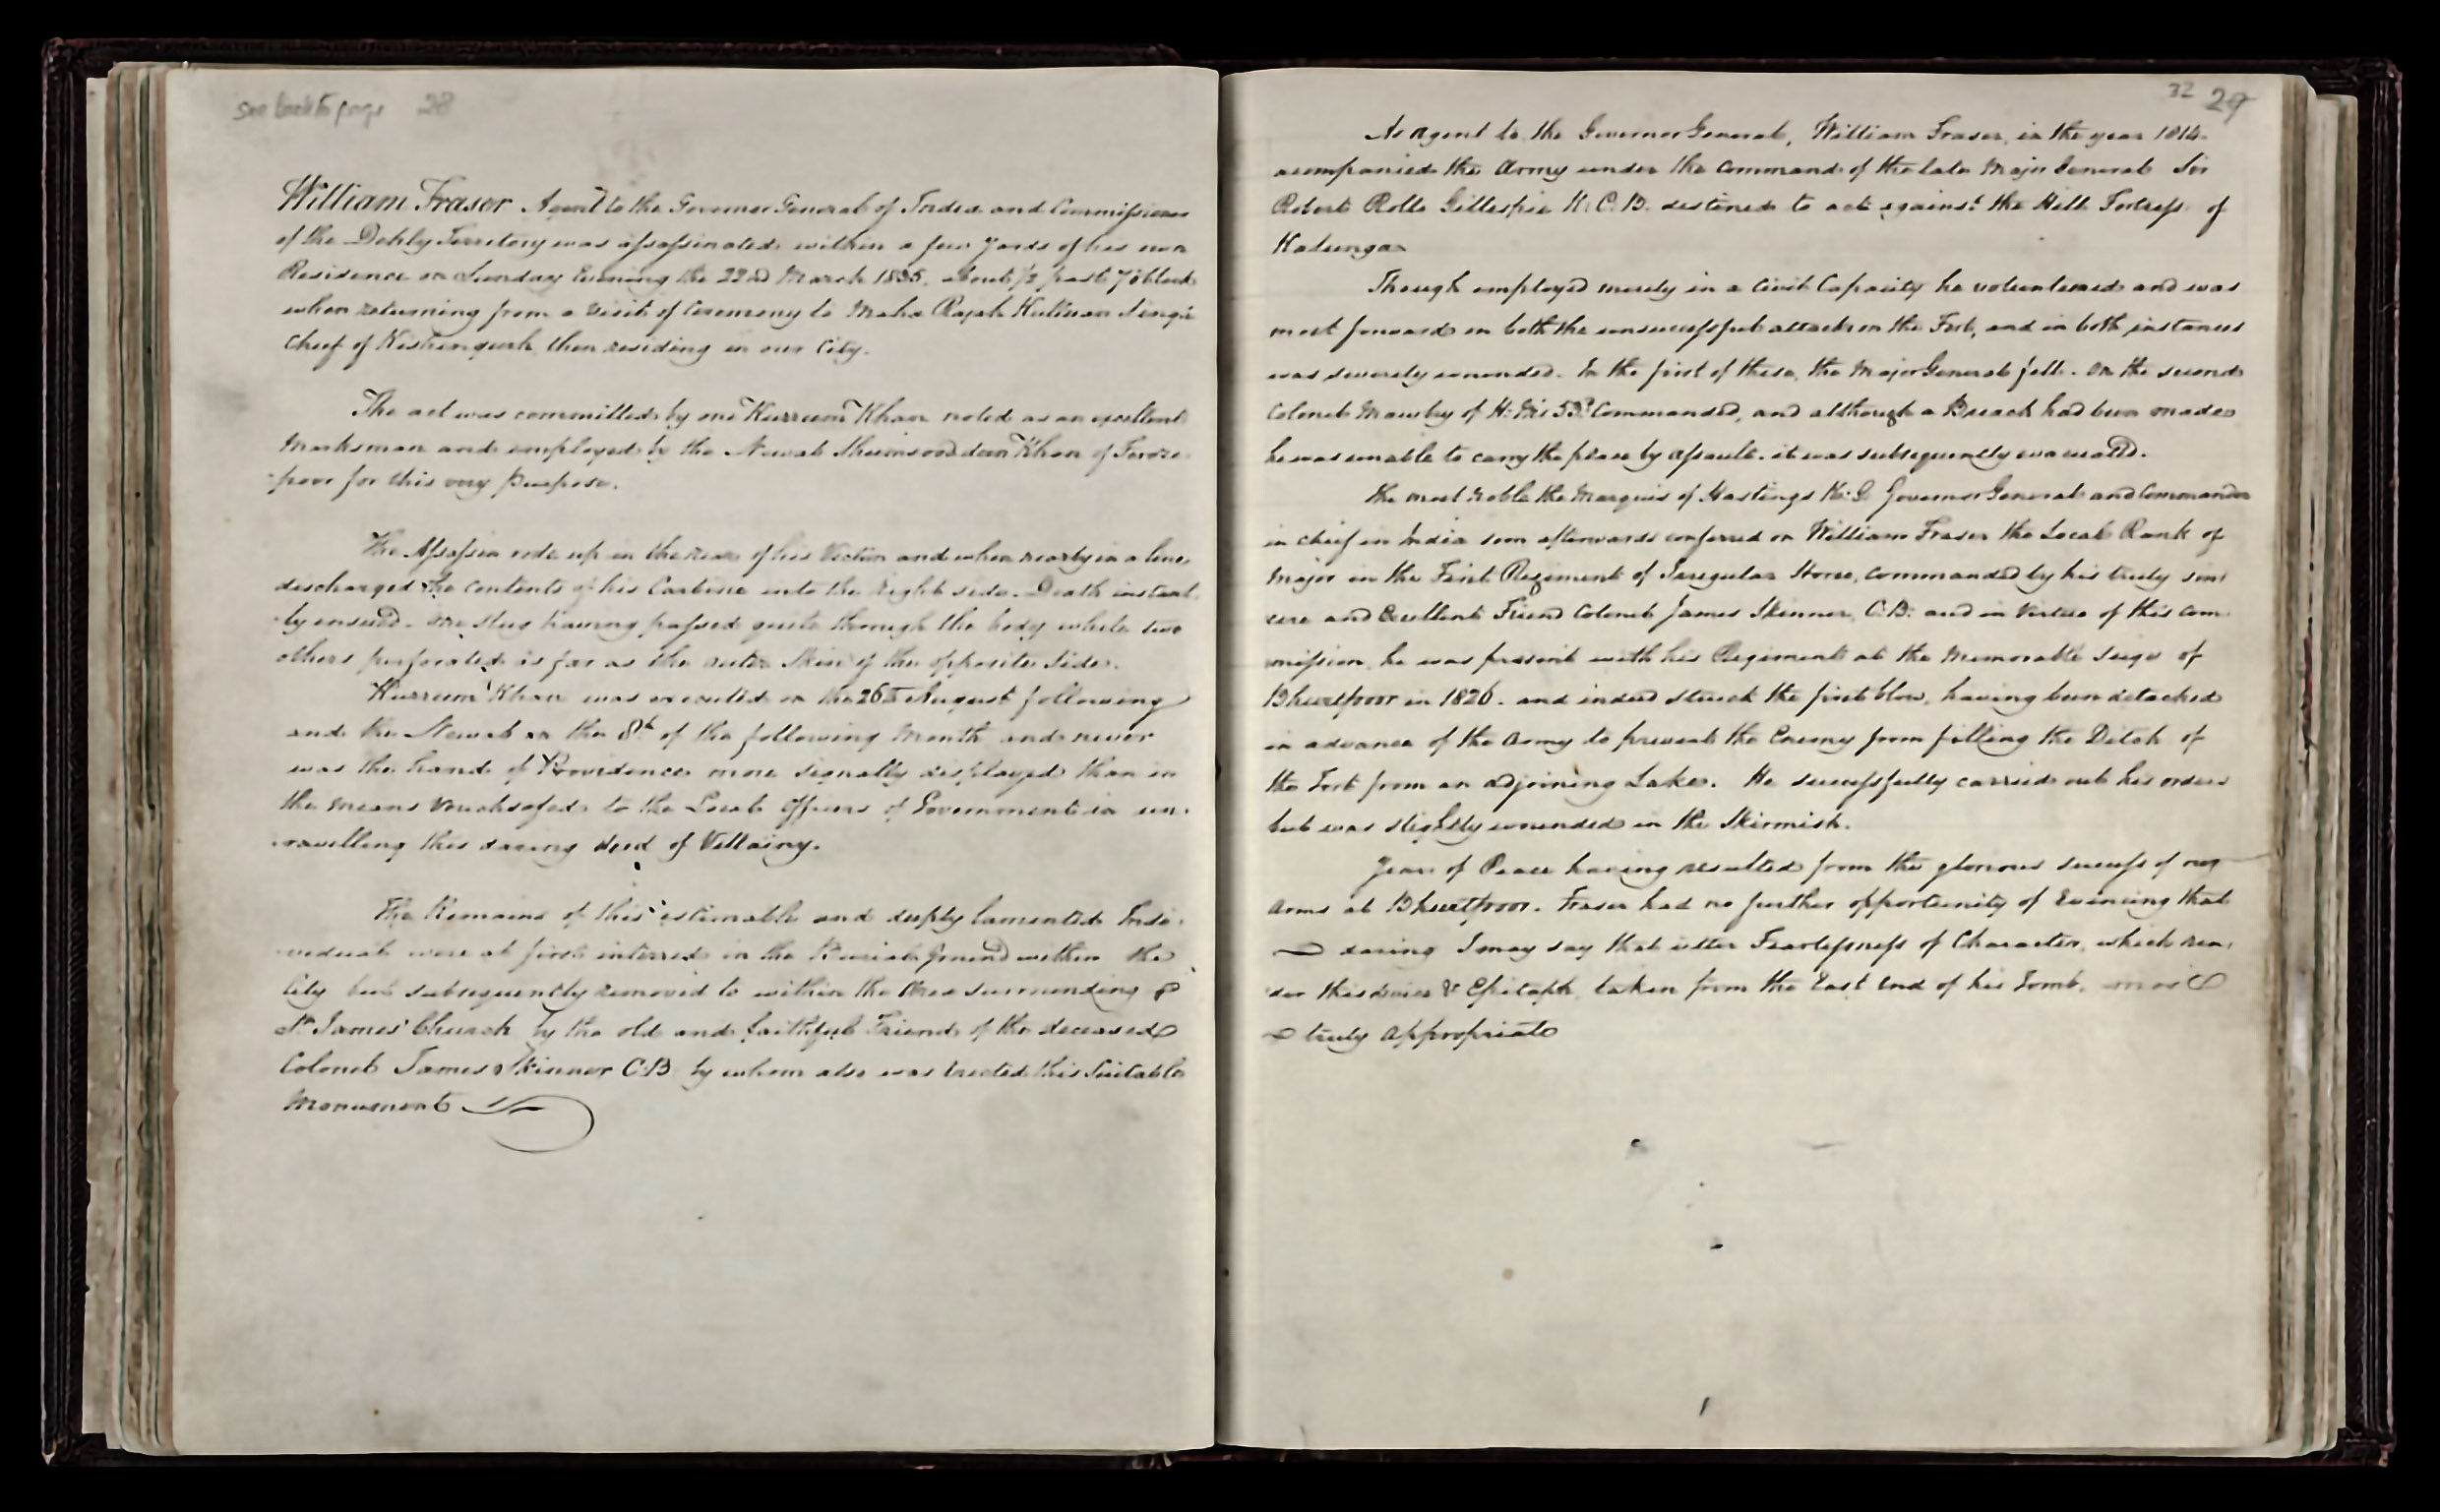 see back to page 28
William Fraser Agent to the Governor General of India and Commissioner
of the Dehly Territory was assassinated within a few yards of his own
Residence on Sunday Evening the 22nd March 1835. about ½ past 7 oClock
when returning from a visit of Ceremony to Maha Rajah Kulliaan Singh
Chief of Kishengurh then residing in our City.
The act was committed by one Kurreem Khan noted as an excellent
Marksman and employed by the Newab Shumsooddeen Khan of Feroze-
-poor for this very Purpose.
The Assassin rode up in the rear of his Victim and when nearly in a line
discharged the contents of his Carbine into the right side. Death instant
-ly ensued. One slug having passed quite through the body while two
others perforated as far as the outer Skin of the opposite side.
Kurreem Khan was executed on the 26th August following
and the Newab on the 8th of the following Month and never
was the hand of Providence more signally displayed than in
the means vouchsafed to the Local Officers of Government in un-
-ravelling this daring deed of Villainy.
The Remains of this estimable and deeply lamented Indi-
-vidual were at first interred in the Burial Ground within the
City but subsequently removed to within the Area surrounding
St James' Church by the old and faithful Friend of the deceased
Colonel James Skinner C.B. by whom also was erected this Suitable
Monument
32 29
As Agent to the Governor General, William Fraser, in the year 1814.
accompanied the Army under the Command of the late Major General Sir
Robert Rollo Gillespie K.C.B. destined to act against the Hill Fortress of
Kalunga
Though employed merely in a Civil Capacity he volunteered and was
most forward in both the unsuccessful attacks on the Fort, and in both instances
was severely wounded. In the first of these, the Major General fell. On the second
Colonel Mawby of H: M's 53d Commanded, and although a Breach had been made
he was unable to carry the place by assault. it was subsequently evacuated.
The most noble the Marquis of Hastings K:G Governor General and Commander
in chief in India soon afterwards conferred on William Fraser the Local Rank of
Major in the First Regiment of Irregular Horse, commanded by his truly sin
cere and Excellent Friend Colonel James Skinner, C.B: and in Virtue of this Com
mission, he was present with his Regiment at the Memorable Seige of
Bhurtpoor in 1826. and indeed struck the first blow, having been detached
in advance of the Army to prevent the Enemy from filling the Ditch of
the Fort from an adjoining Lake. He successfully carried out his orders
but was slightly wounded in the Skirmish.
Years of Peace having resulted from the glorious success of our
Arms at Bhurtpoor. Fraser had no further opportunity of Evincing that
daring I may say that utter Fearlessness of Character, which ren-
-der this & Epitaph, taken from the East End of his Tomb,
truly appropriate